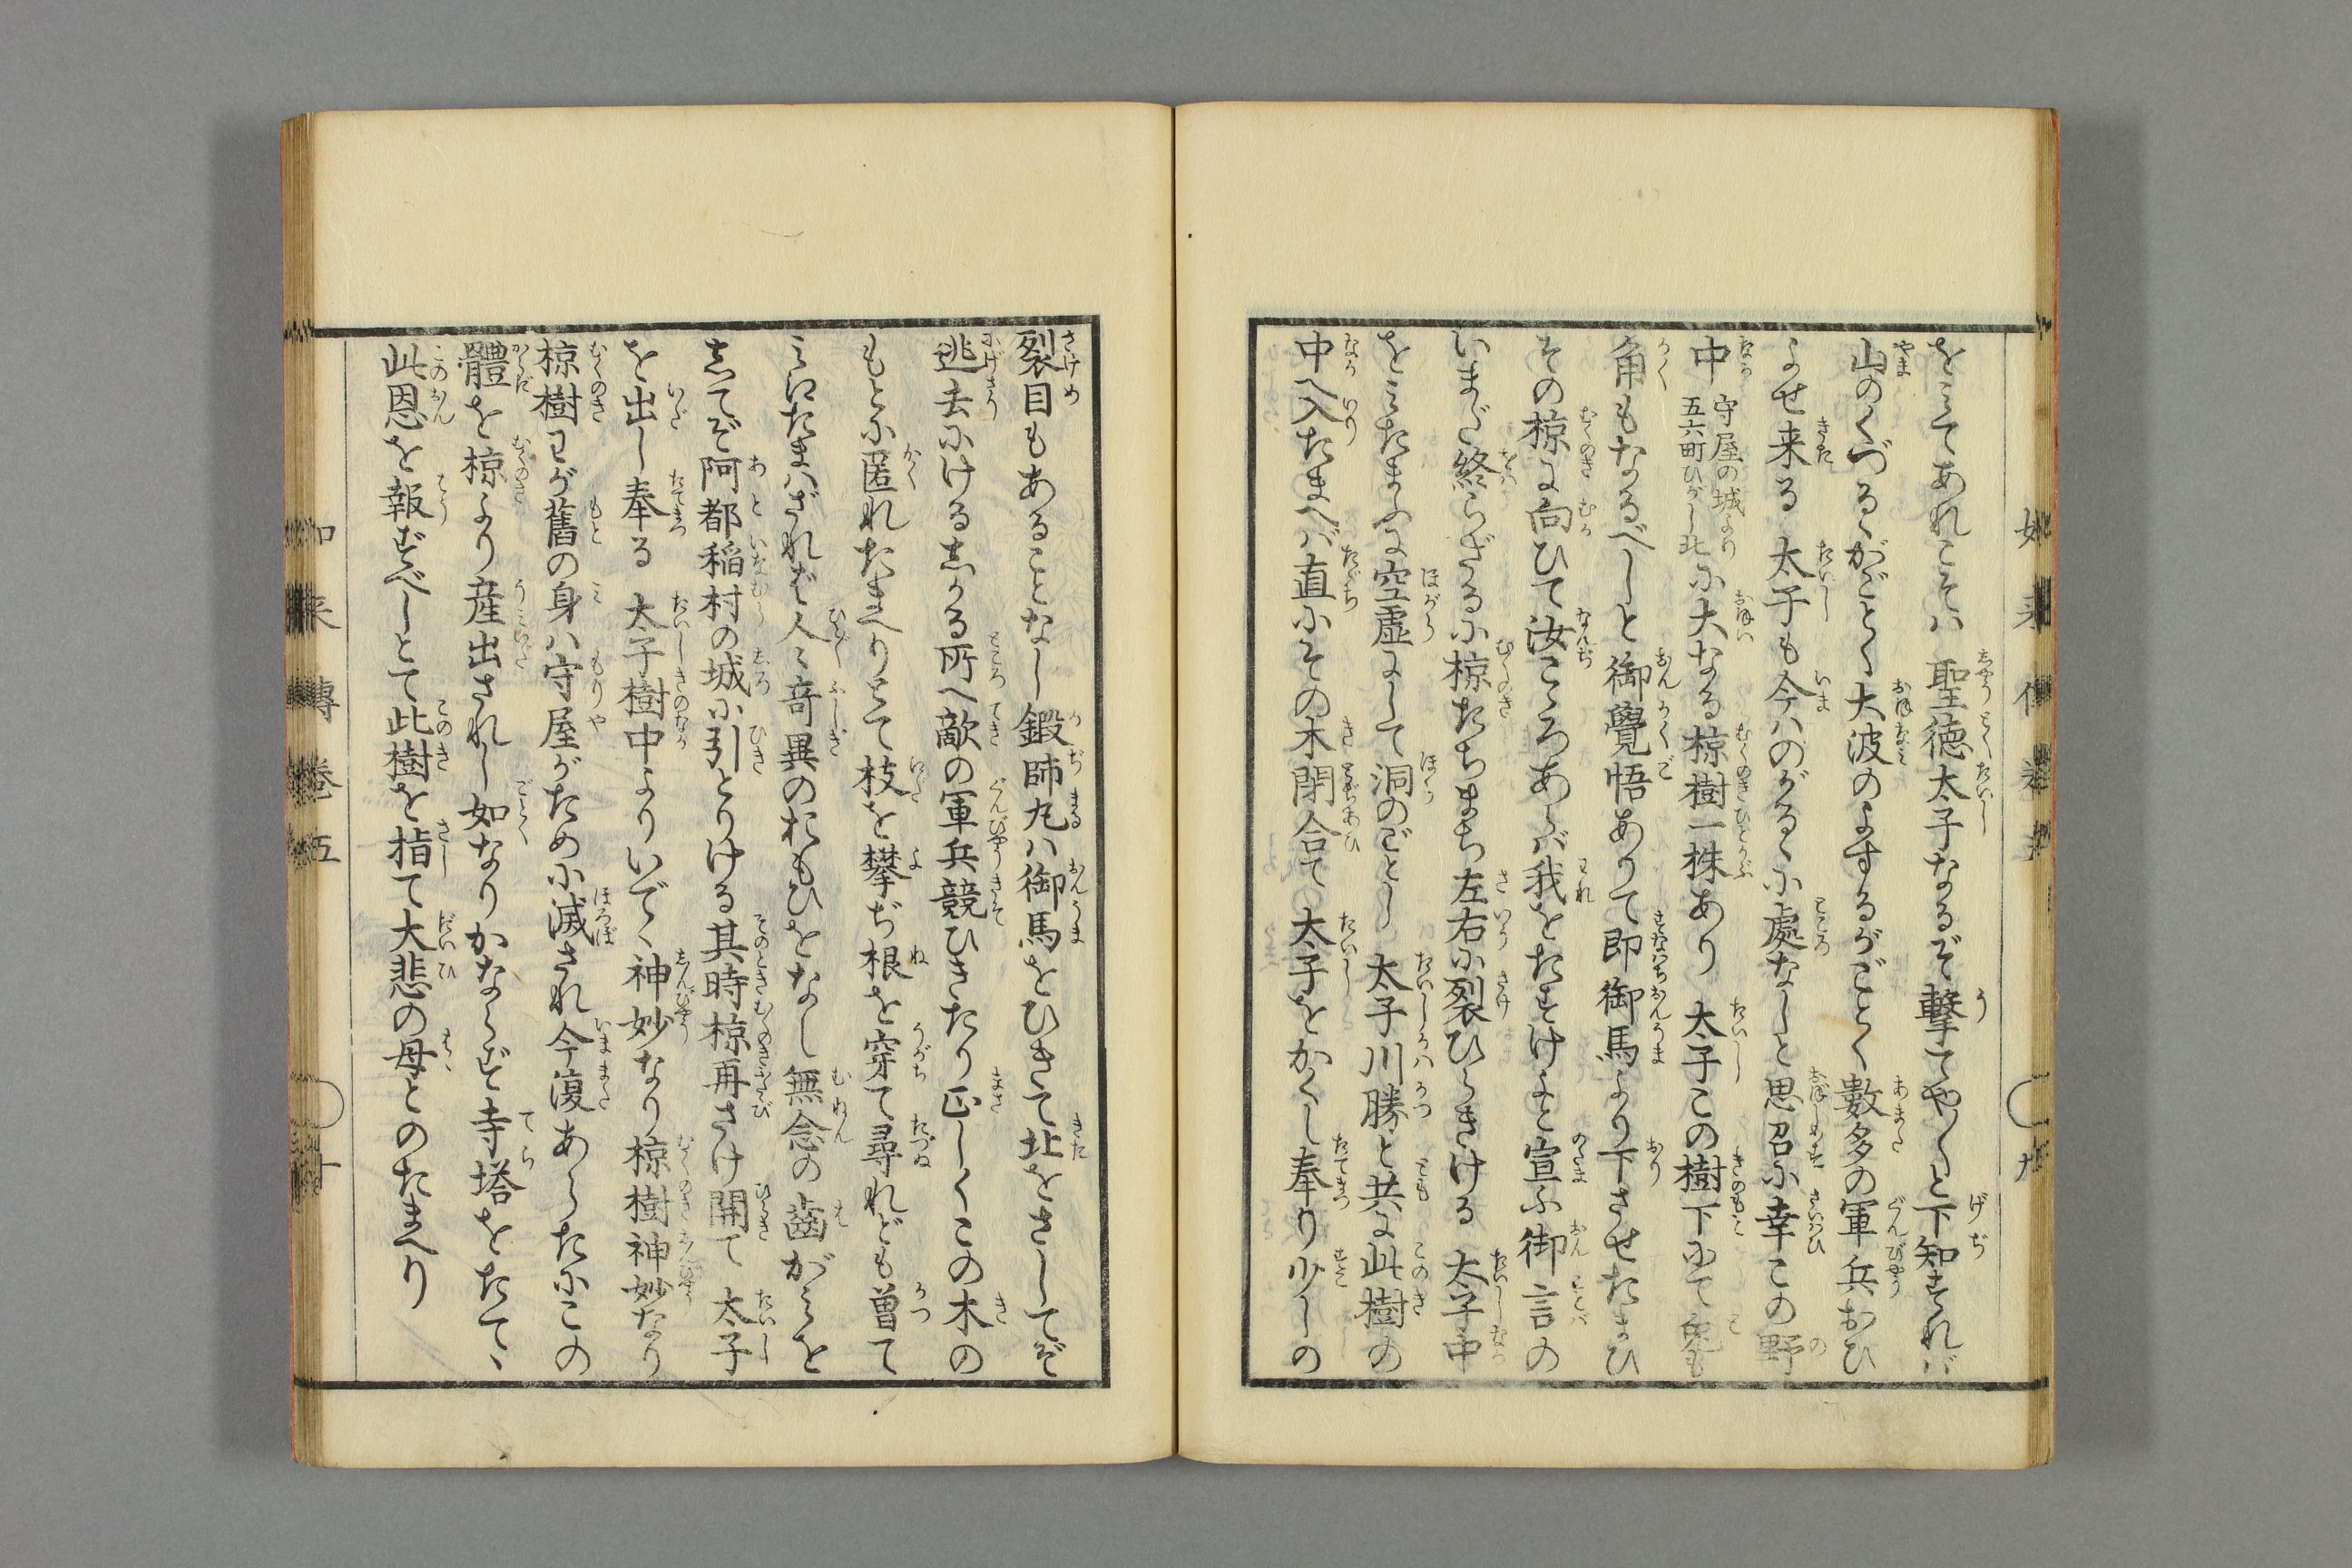 をミてあれこそハ　聖徳太子なるぞ撃てや〱と下知すれバ
山のくづるゝがごとく大波のよするがごとく數多の軍兵おひ
よせ来る　太子も今ハのがるゝに處なしと思召に幸この野
中守屋の城より五六町ひがし北に大なる椋樹一株あり　太子この樹下にて兎も
角もなるべしと御覺悟ありて即御馬より下させたまひ
その椋に向ひて汝こゝろあらバ我をたすけよと宣ふ御言の
いまだ終らざるに椋たちまち左右に裂ひらきける　太子中
をミたまふに空虚にして洞のごとし　太子川勝と共に此樹の
中へ入たまへバ直にその木閉合て　太子をかくし奉り少しの
裂目もあることなし鍛師丸ハ御馬をひきて北をさしてぞ
逃去にけるしかる所へ敵の軍兵競ひきたり正しくこの木の
もとに匿れたまへりとて枝を攀ぢ根を穿て尋れども曽て
ミえたまハざれバ人〻竒異のおもひをなし無念の齒がミを
してぞ阿都稲村の城に引とりける其時椋再さけ開て　太子
を出し奉る　太子樹中よりいでゝ神妙なり椋樹神妙なり
椋樹わが舊の身ハ守屋がために滅され今復あらたにこの
體を椋より産出されし如なりかならず寺塔をたてゝ
此恩を報ずべしとて此樹を指て大悲の母とのたまへり
如来傳巻五　十